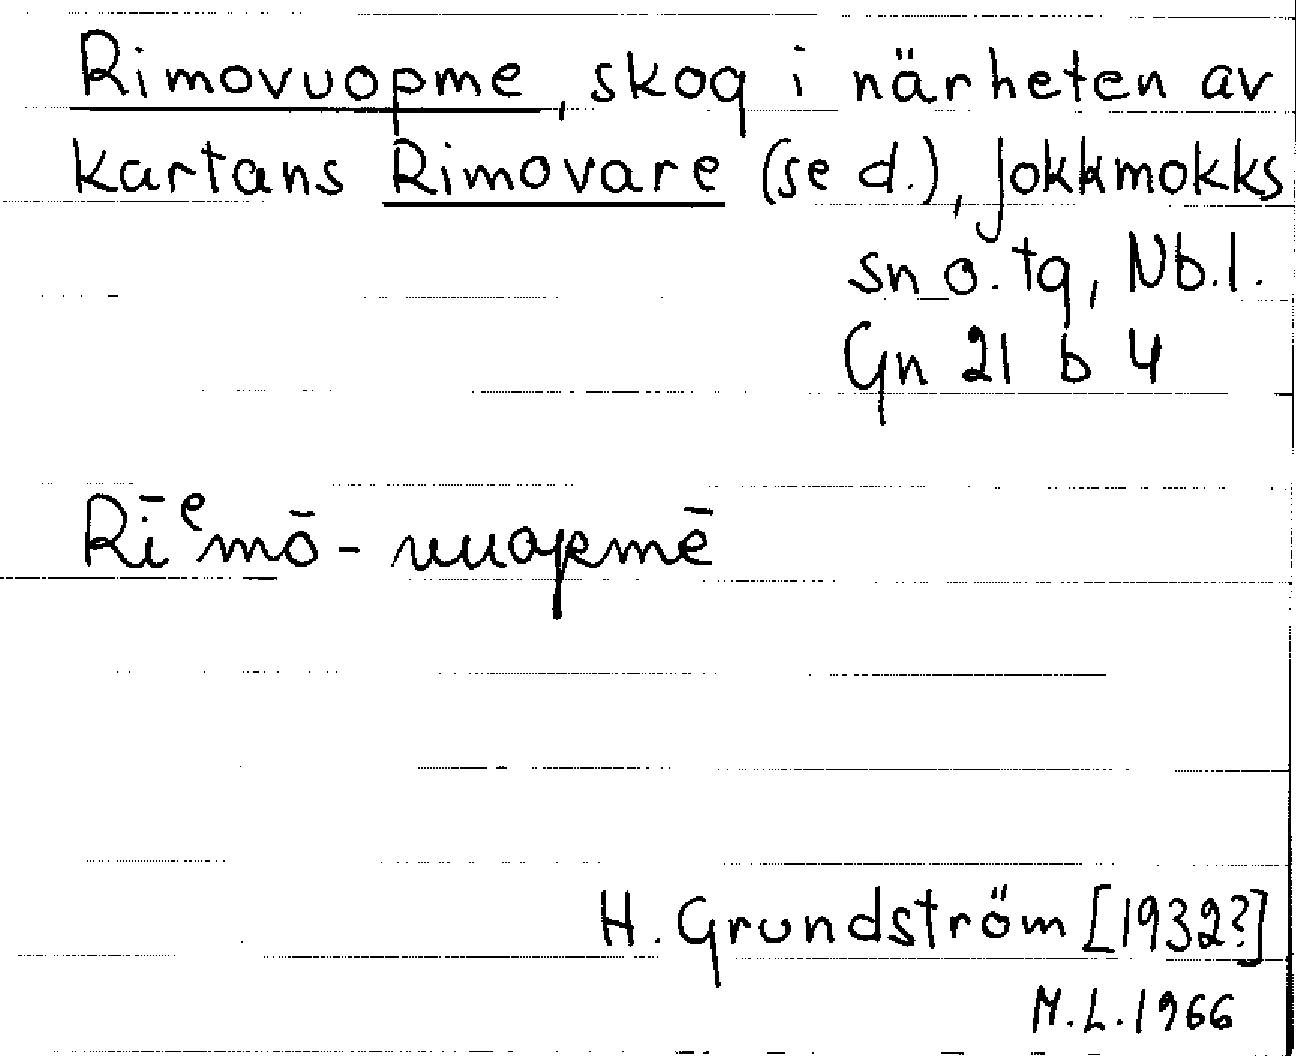 Rimovuopme, skog i närheten av
kartans Rimovare (se d.), Jokkmokks
sn o. tg, Nb.l.
Gn 21 b 4
Rīᵉmō-
H. Grundström [1932?]
M.L. 1966